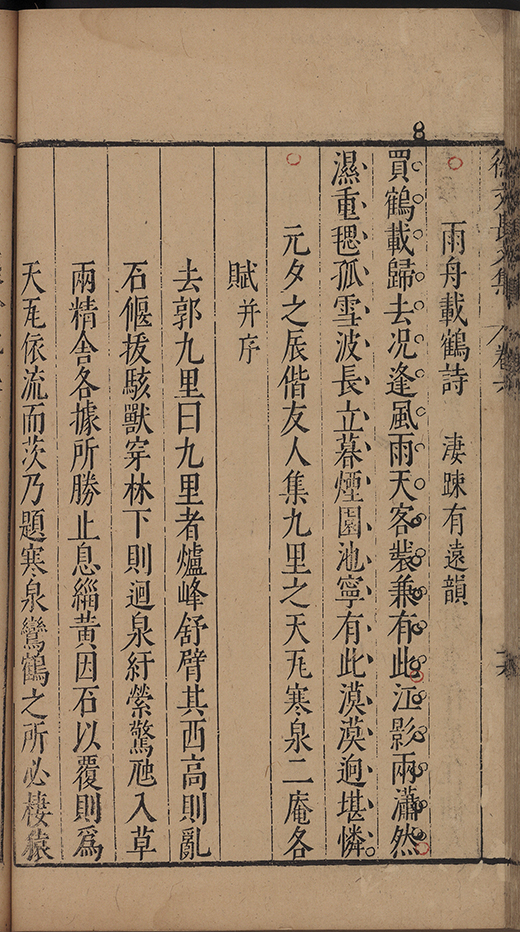 8
徐文長文集 卷六
雨舟載鶴詩 淒踈有遠韻
買鶴載歸去况逢風雨天客裝兼有此江影兩瀟然
濕重毸孤雪波長立暮煙園池寧有此漠漠迥堪憐
元夕之辰偕友人集九里之天瓦寒泉二庵各
賦并序
去郭九里曰九里者爐峰舒臂其西高則亂
石偃拔駭獸穿林下則迴泉紆縈驚虺入草
兩精舍各據所勝止息緇黃因石以覆則爲
天瓦依流而茨乃題寒泉鸞鶴之所必棲猿